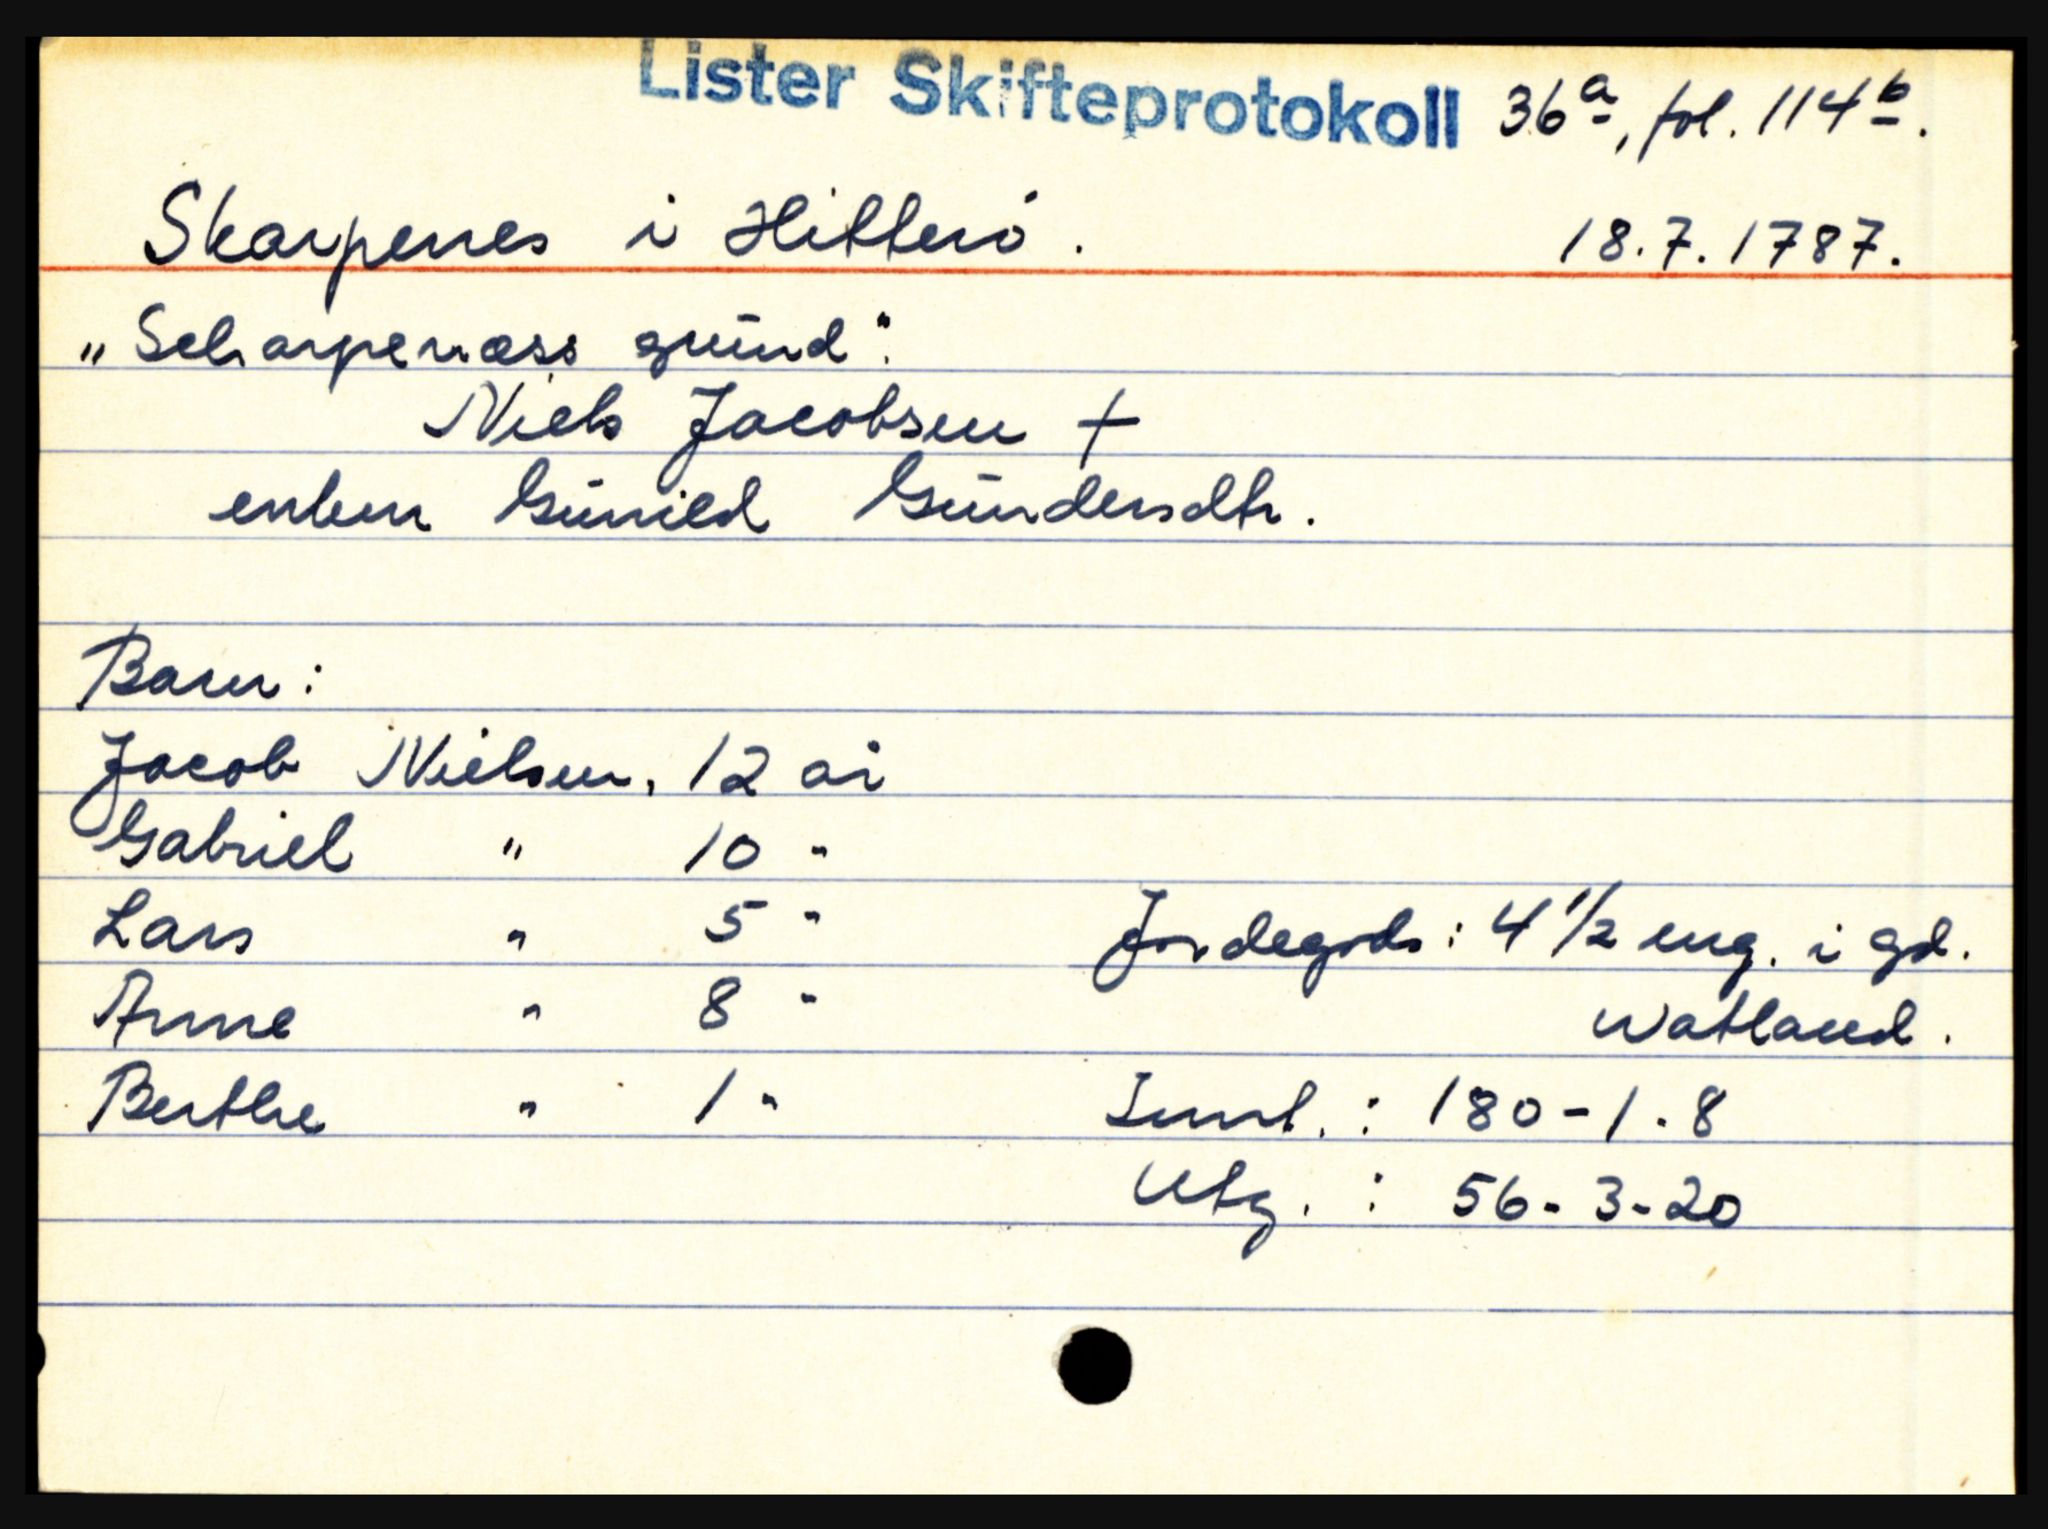 Lister Skifteprotokoll 36a, fol. 114b.
Skarpenes i Hitterö. 18.7.1787.
„Scharpenæss grund".
Niels Jacobsen +
enken Gunild Gundersdtr.
Barn:
Jacob Nielsen, 12 år
Gabriel " 10 "
Lars " 5 " Jordegods: 4 1/2 eng. i gd.
Anne " 8 " Watland.
Berthe " 1 " Innt. : 180-1-8
Utg. : 56-3-20